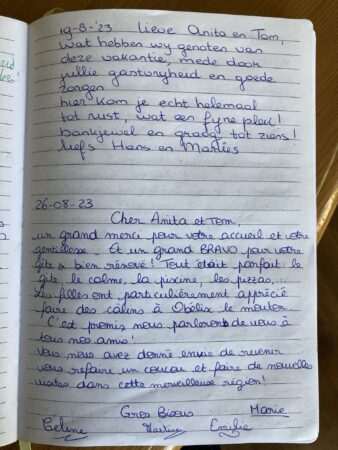 19-8-'23 Lieve Anita en Tom,
wat hebben wy genoten van
deze vakantie, mede door
jullie gastvryheid en goede
zorgen
hier kom je echt helemaal
tot rust, wat een fyne plek!
bankjewel en graag tot ziens!
liefs Hans en Marlies
26-08-23
Cher Anita et Tom,
un grand merci pour votre accueil et votre
gentillesse. Et un grand BRAVO pour votre
gîte si bien rénové! Tout était parfait: le
gîte, le calme, la piscine, les pizzas,...
Les filles ont particulièrement apprécié
faire des calins à Obélix le mouton.
C'est promis nous parlerons de vous à
tous nos amis!
Vous nous avez donné envie de revenir
vous refaire un coucou et faire de nouvelles
visites dans cette merveilleuse région!
Gros Bisous Marie
Céline Martine Emylie